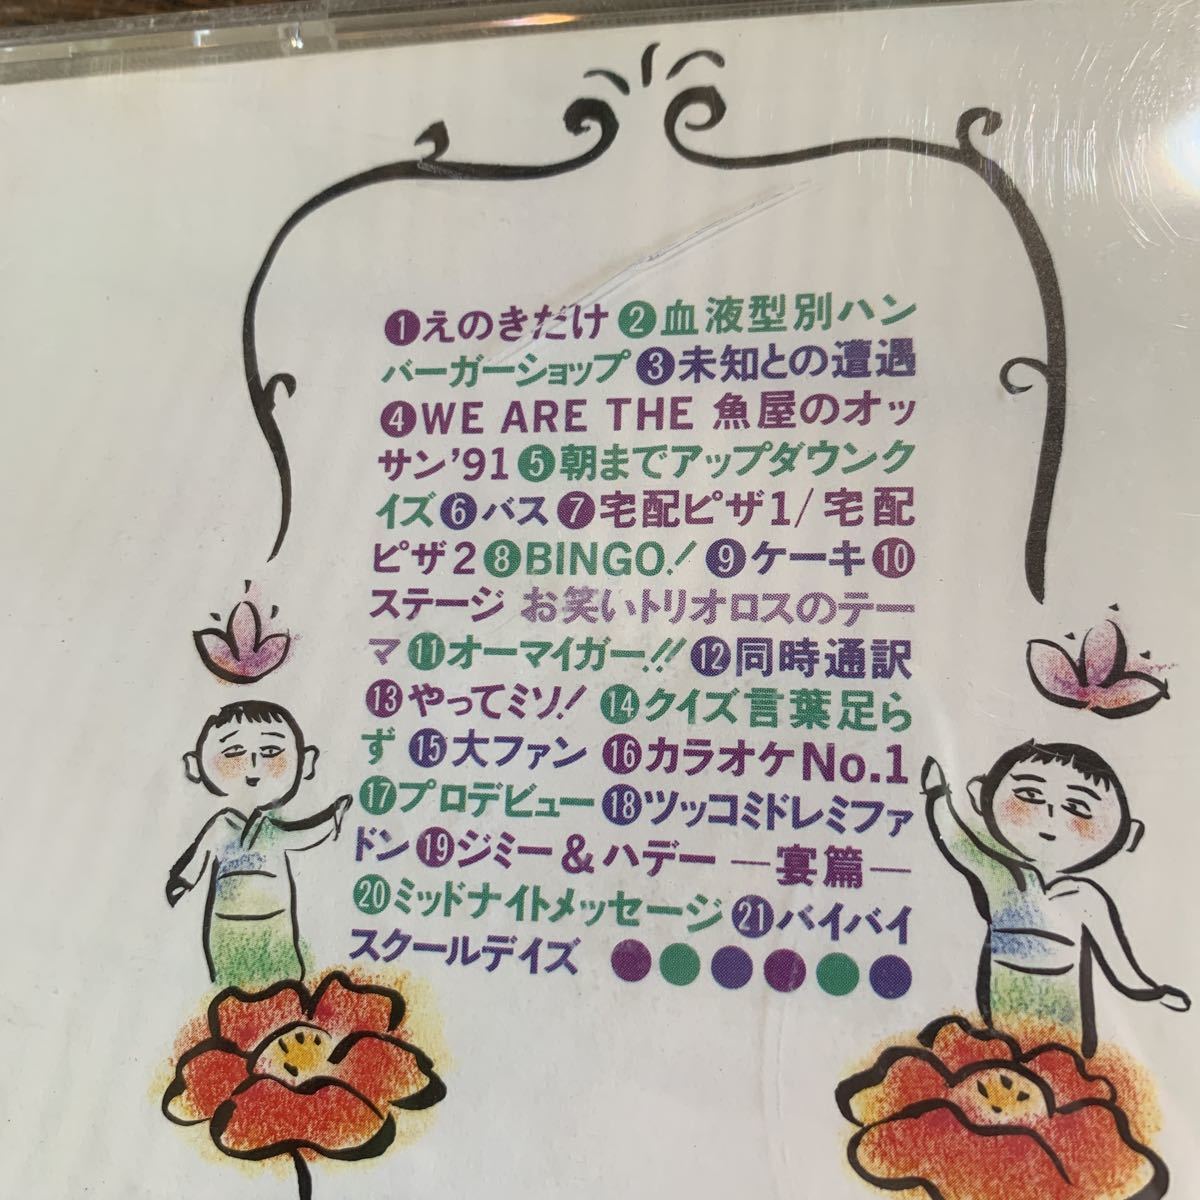 ❶えのきだけ❷血液型別ハン
バーガーショップ❸未知との遭遇
❹WE ARE THE 魚屋のオッ
サン'91❺朝までアップダウンク
イズ❻バス❼宅配ピザ1/宅配
ピザ2❽BINGO!❾ケーキ❿
ステージ お笑いトリオロスのテー
マ⓫オーマイガー!!⓬同時通訳
⓭やってミソ!⓮クイズ言葉足ら
ず⓯大ファン⓰カラオケNo.1
⓱プロデビュー⓲ツッコミドレミファ
ドン⓳ジミー&ハデー ―宴篇―
⓴ミッドナイトメッセージ㉑バイバイ
スクールデイズ